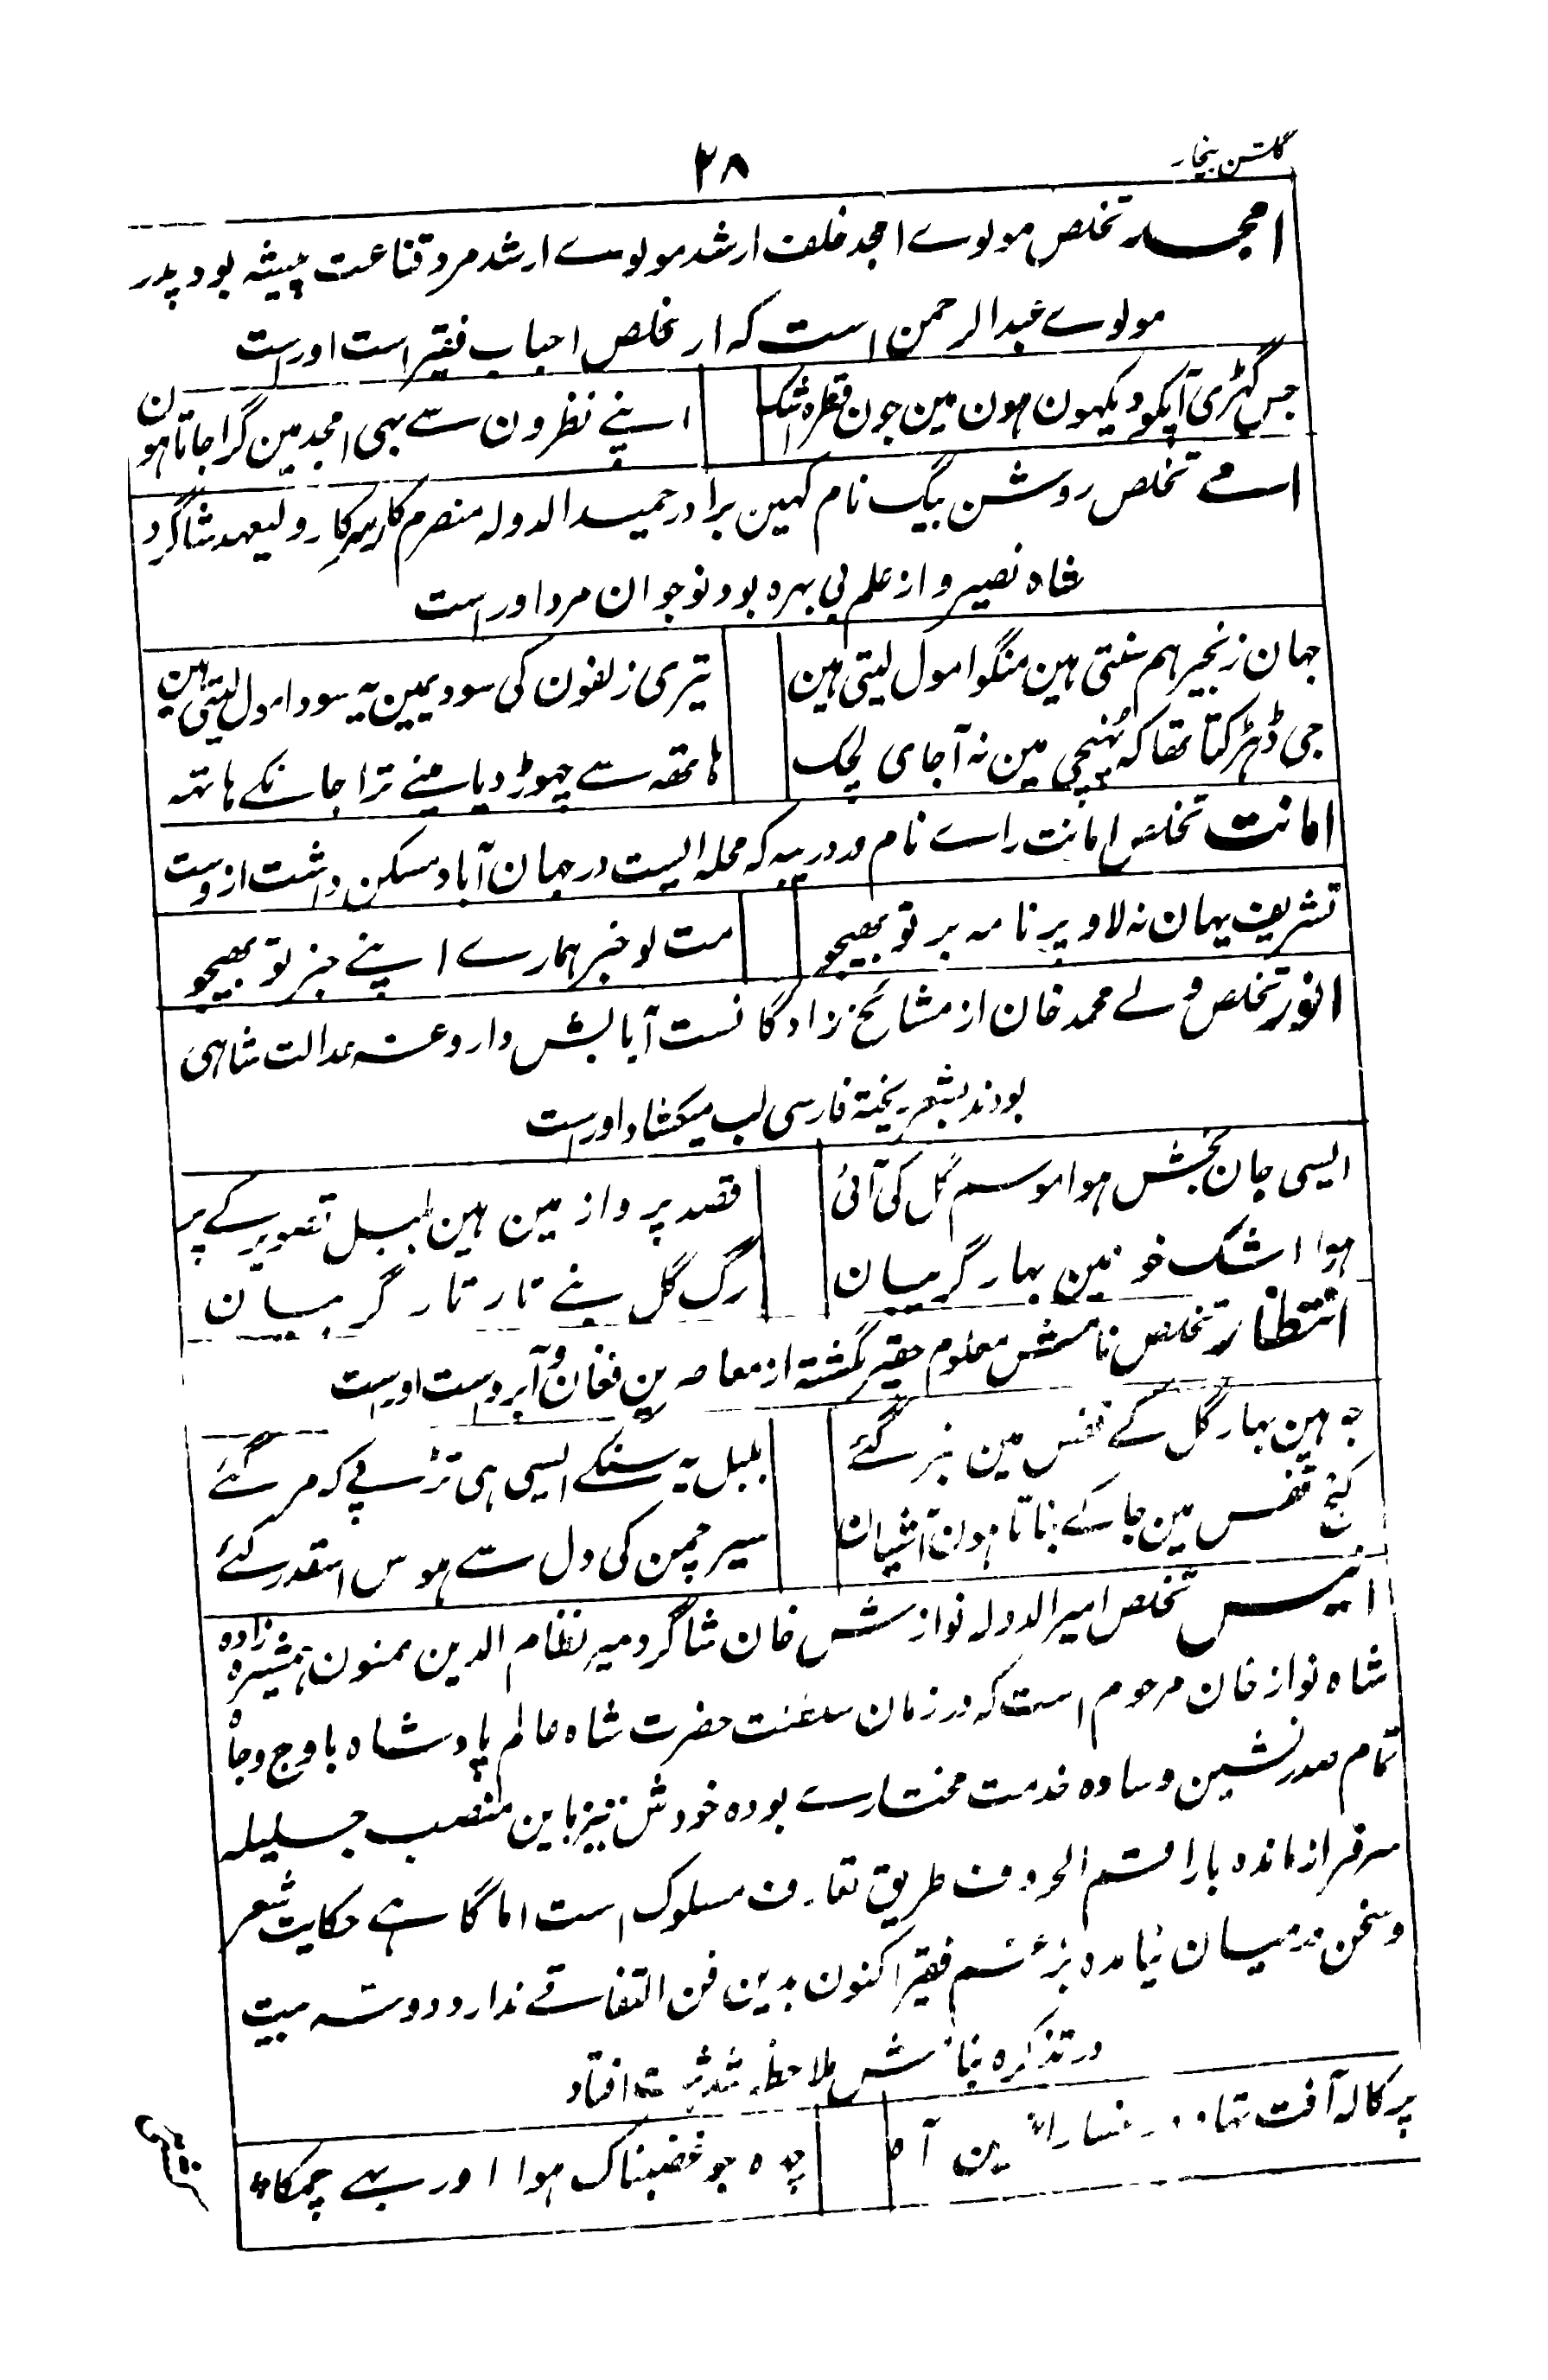 گلشن بیخار
۲۸
امجد تخلص مولوے امجد خلف ارشد مولوے ارشد مرد قناعت پیشہ بود پدر
مولوے عبدالرحمن است کہ از مخلص احباب فقیر است اوراست
جس گہڑی آپکو دیکہون ہون مین جون قطرہ اشک
اپنے نظرون سے بہی امجد مین گرا جاتا ہون
تخلص روشن بیگ نام کہین برادر حمید الدولہ منصرم کار سرکار ولیعہد شاگرد
شاہ نصیر و از علم بی بہرہ بود نوجوان مرد اوراست
جہان زنجیر ہم سنتی ہین منگوا مول لیتی ہین
تیری زلفون کی سودیمین یہ سودا مول لیتی ہین
جی ڈہڑکتا تھا کہ پُہنچی مین نہ آجای لچک
ہاتھہ سے چہوڑ دیا مینے ترا جانکے ہاتہ
امانت تخلص امانت راے نام در دریبہ کہ محلہ ایست در جہان آباد مسکن داشت ازوست
تشریف یہان نہ لاو پر نامہ بر تو بھیجو
مت لو خبر ہمارے اپنے خبر تو بھیجو
انور تخلص ولے محمد خان از مشائخ زادگانست آبایش داروغہ عدالت شاہی
بودند بشعر ریختہ فارسی لب میکشاد اوراست
ایسی جان بخش ہوا موسم گل کی آئی
قصد پرواز مین ہین بلبل تصویر کے پر
ہوا اشک خونین بہار گریبان
رگ گل بنے تار تار گریبان
انتظار تخلص نامش معلوم حقیر نگشتہ از معاصرین فغان و آبروست اوراست
جو ہین بہار گل کے قفس مین خبر گئے
بلبل یہ سنکے ایسی ہی تڑپے کہ مر گئے
کنج قفس مین جا کے بناتا ہون آشیان
سیر چمن کی دل سے ہوس اسقدر گئے
انیس تخلص امیر الدولہ نوازش خان شاگرد میر نظام الدین ممنون ہمشیرہ زادہ
شاہ نواز خان مرحوم است کہ در زمان سلطنت حضرت شاہ عالم پادشاہ باوج و جاہ
تمام صدر نشین وسادہ خدمت مختارے بودہ خودش نیز باین منصب جلیلہ
سرفراز ماندہ با راقم الحروف طریق تعارف مسلوک است اما گاہے حکایت شعر
و سخن درمیان نیامدہ بزعم فقیر اکنون بدین فن التفاتے ندارد دوسہ بیت
در تذکرہ بنامش ملاحظہ شد ثبت افتاد
پرکالہ آفت تہا رخسار
جو غضبناک ہوا اور بہے چمکا